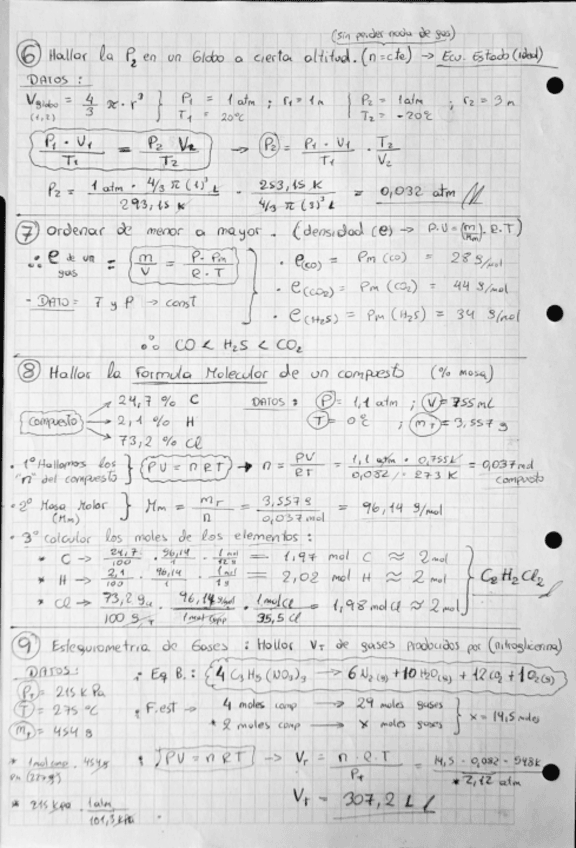 (sin perder nada de gas)
⑥ Hallar la P₂ en un Globo a cierta altitud. (n=cte) → Ecu. Estado (ideal)
DATOS :
V globo (1,2) = 4/3 π · r³ } P₁ = 1 atm ; r₁ = 1m | P₂ = 1atm ; r₂ = 3 m
T₁ = 20ºC | T₂ = -20ºC
P₁ · V₁ / T₁ = P₂ V₂ / T₂ → P₂ = P₁ · V₁ / T₁ · T₂ / V₂
P₂ = 1 atm · 4/3 π (1)³ L / 293,15 K · 253,15 K / 4/3 π (3)³ L = 0,032 atm
⑦ Ordenar de menor a mayor. (densidad (ρ) → P.V = (m/Mm) . R.T)
∴ ρ de un gas = m/V = P · Pm / R · T
· ρ(CO) = Pm (CO) = 28 g/mol
· ρ(CO₂) = Pm (CO₂) = 44 g/mol
- DATO : T y P → const
· ρ(H₂S) = Pm (H₂S) = 34 g/mol
∴ CO < H₂S < CO₂
⑧ Hallar la Formula Molecular de un compuesto (% masa)
compuesto → 24,7 % C
→ 2,1 % H
→ 73,2 % Cl
DATOS : P = 1,1 atm ; V = 755 mL
T = 0ºC ; m_T = 3,557 g
· 1º Hallamos los "n" del compuesto } PV = nRT → n = PV / RT = 1,1 atm · 0,755L / 0,082 · 273 K = 0,037 mol compuesto
· 2º Masa Molar (Mm) } Mm = m_T / n = 3,557 g / 0,037 mol = 96,14 g/mol
· 3º calcular los moles de los elementos :
* C → 24,7/100 · 96,14/1 · 1 mol/12 g = 1,97 mol C ≈ 2 mol
* H → 2,1/100 · 96,14/1 · 1 mol/1 g = 2,02 mol H ≈ 2 mol } C₂H₂Cl₂
* Cl → 73,2 g / 100 g · 96,14 g / 1 mol comp · 1 mol Cl / 35,5 Cl = 1,98 mol Cl ≈ 2 mol
⑨ Estequiometria de Gases : Hallar V_T de gases producidos por (nitroglicerina)
DATOS :
· Eq B. : 4 C₃H₅(NO₃)₃ → 6 N₂(g) + 10 H₂O(g) + 12 CO₂ + 1 O₂(g)
P_T = 215 k Pa
T = 275 ºC
m_T = 454 g
· F.est → 4 moles comp → 29 moles gases
* 2 moles comp → x moles gases } x = 14,5 moles
* 1 mol comp · 454 g
· PV = nRT → V_T = n · R · T / P_T = 14,5 · 0,082 · 548K / * 2,12 atm
* 215 kPa · 1 atm / 101,3 kPa
V_T = 307,2 L